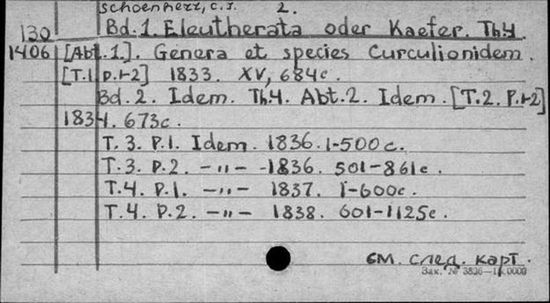 Schoenherr, C.J. 2.
130 Bd. 1. Eleutherata oder Kaefer. Th4.
1406 [Abt. 1]. Genera et species Curculionidem.
[T.1 p.1-2] 1833. XV, 684c.
Bd. 2. Idem. Th4. Abt. 2. Idem. [T.2. P.1-2]
1834. 673c.
T. 3. P.1. Idem. 1836. 1-500c.
T. 3. P.2. -"- -1836. 501-861c.
T.4. P.1. -"- 1837. 1-600c.
T.4. P.2. -"- 1838. 601-1125c.
см. след. карт.
Зак. № 3836-